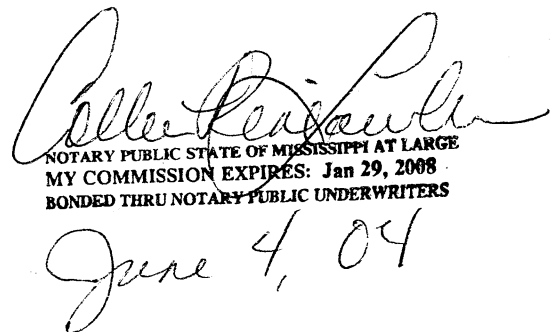 NOTARY PUBLIC STATE OF MISSISSIPPI AT LARGE
MY COMMISSION EXPIRES: Jan 29, 2008
BONDED THRU NOTARY PUBLIC UNDERWRITERS
June 4, 04